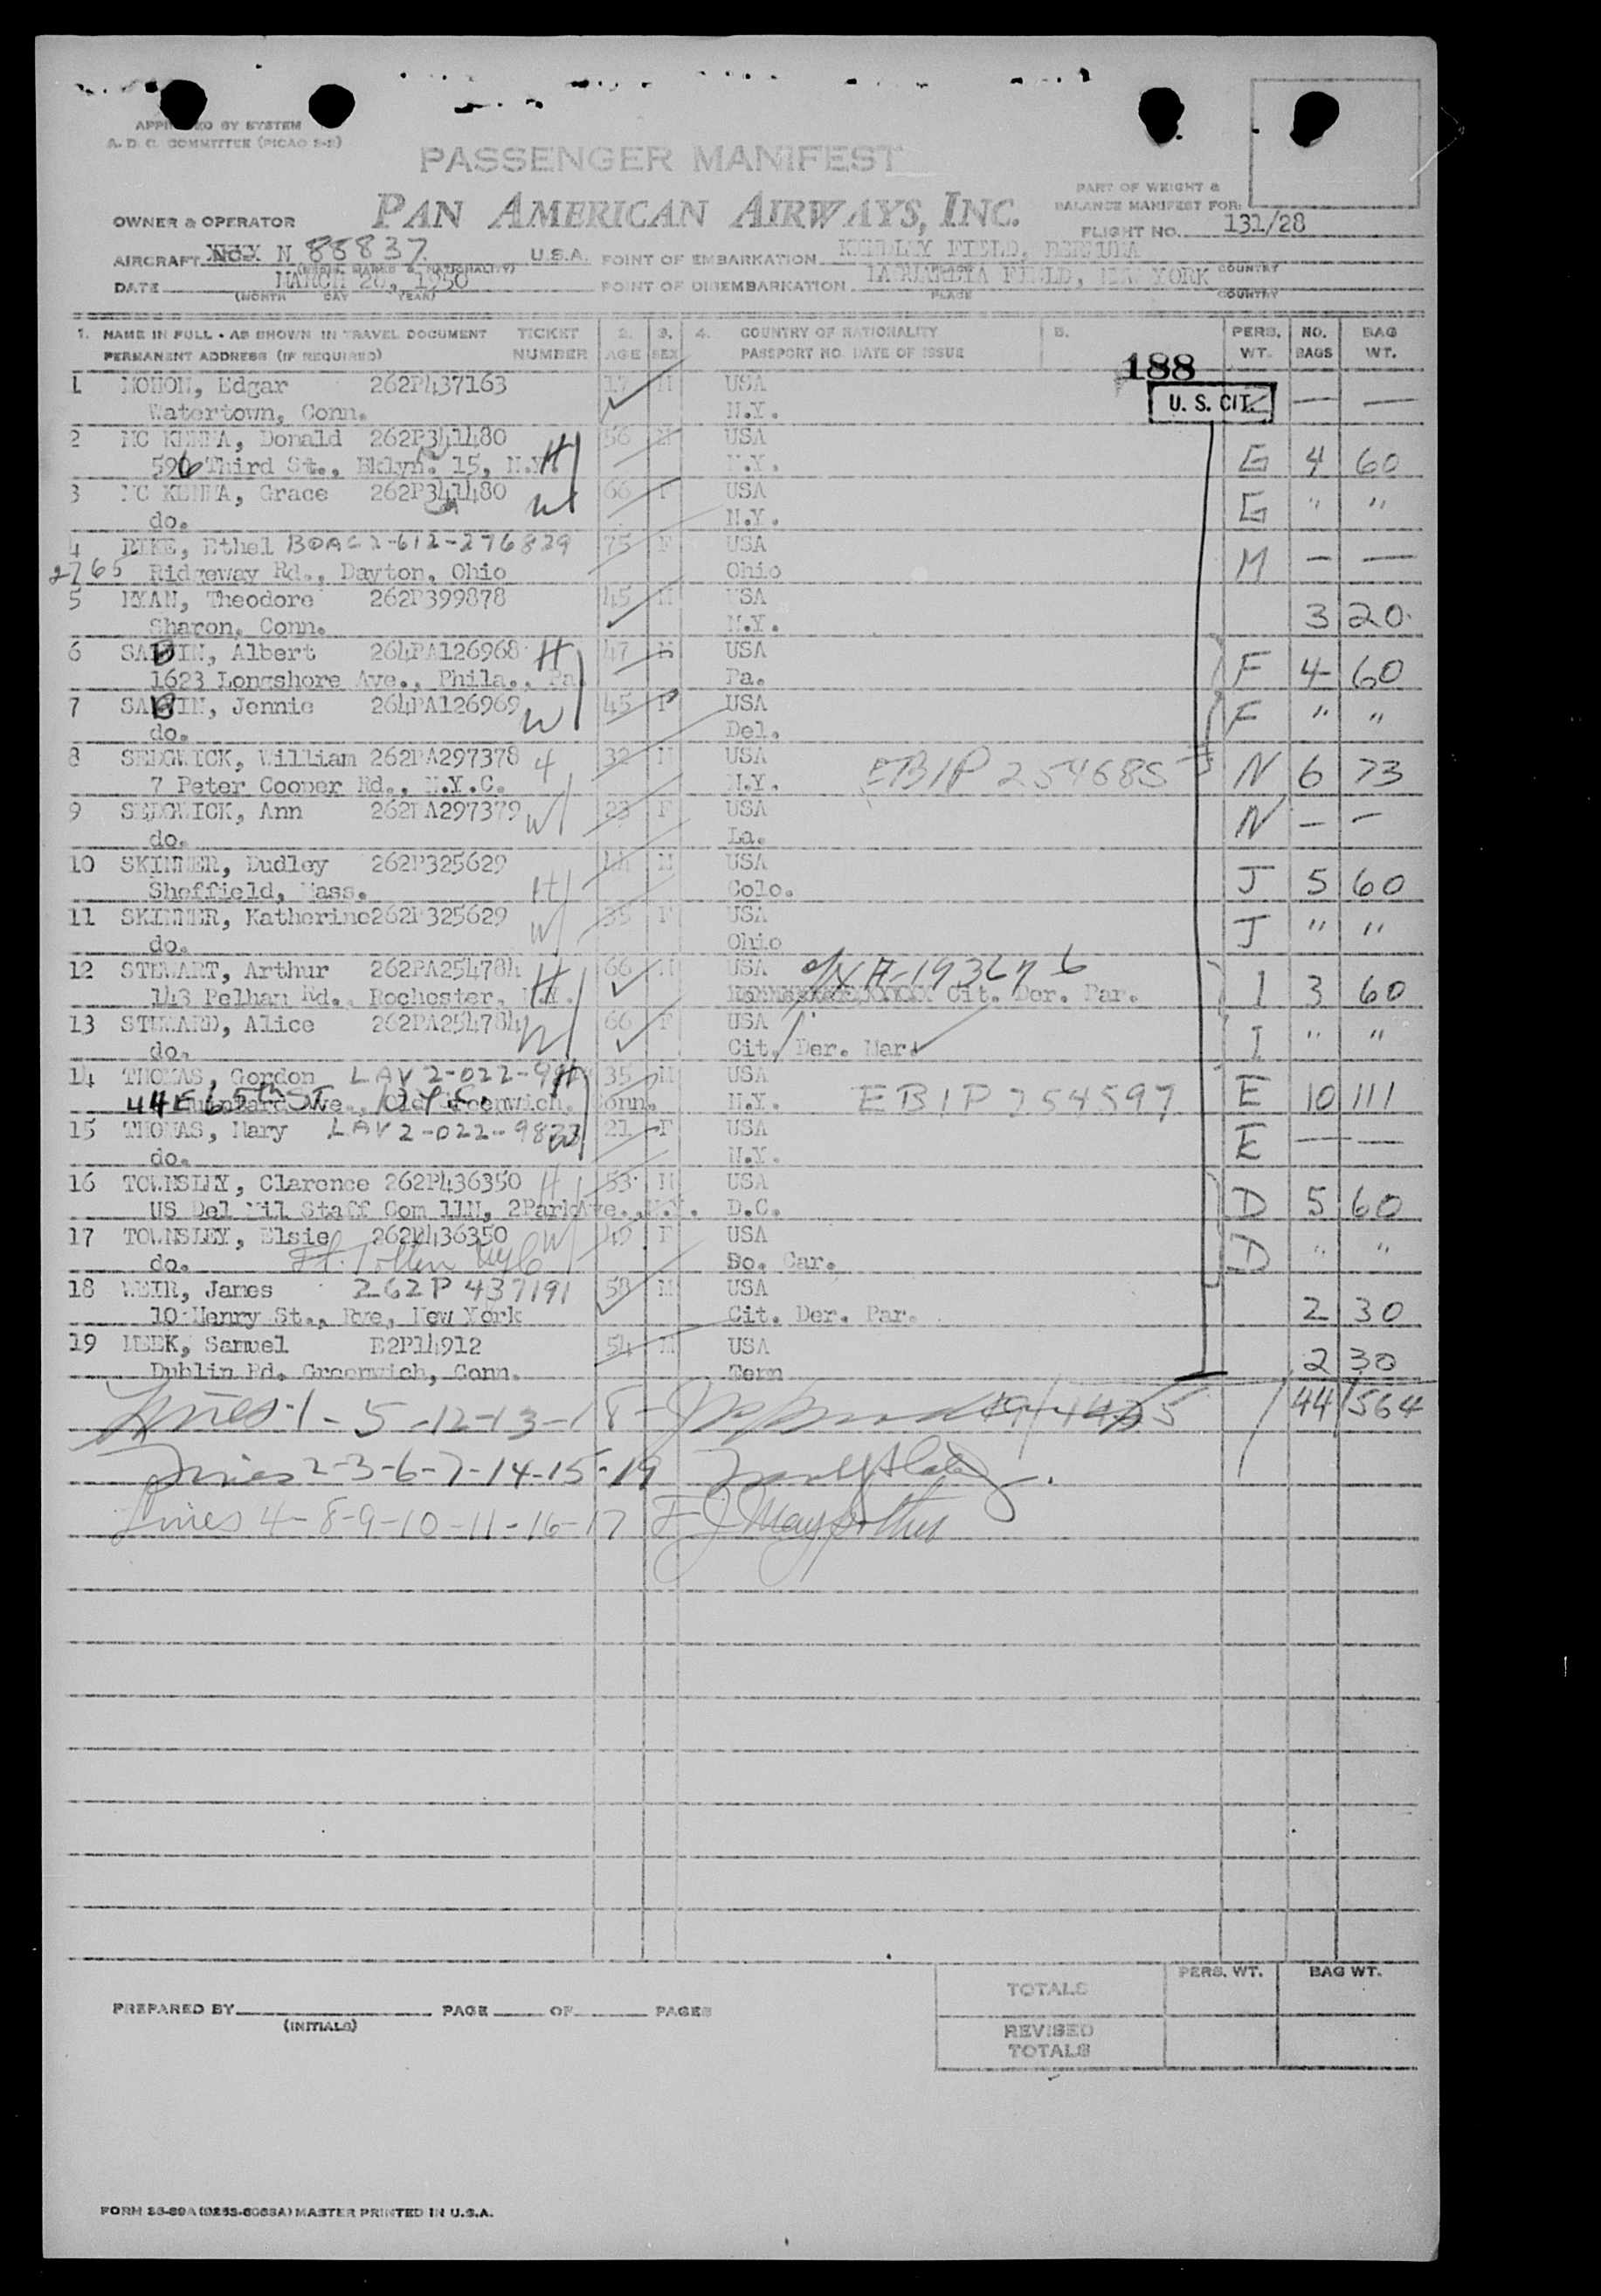 BY SYSTEM
A. D. C. COMMITTEE (PICAO
PASSENGER MANIFEST
PAN AMERICAN AIRWAYS, INC.
PART OF WEIGHT &
BALANCE MANIFEST FOR:
OWNER & OPERATOR
FLIGHT NO. 131/28
AIRCRAFT N 88837 U.S.A. POINT OF EMBARKATION KINDLEY FIELD, BERMUDA
DATE MARCH 28, 1950 POINT OF DISEMBARKATION FIELD, NEW YORK
(MONTH DAY YEAR) PLACE COUNTRY
1. NAME IN FULL - AS SHOWN IN TRAVEL DOCUMENT TICKET 2. 3. 4. COUNTRY OF NATIONALITY 5. PERS. NO. BAG
PERMANENT ADDRESS (IF REQUIRED) NUMBER AGE SEX PASSPORT NO. DATE OF ISSUE WT. BAGS WT.
188
1 Edgar 262P437163 17 M USA U. S. CIT. — —
Watertown, Conn. N.Y.
2 MC KENNA, Donald 262P341480 H 56 M USA
Third St., Bklyn. 15, N.Y. N.Y. G 4 60
3 MC KENNA, Grace 262P341480 W 66 F USA
do. N.Y. G " "
4 Ethel BOAC 2-612-276829 75 F USA
2765 Ridgeway Rd., Dayton, Ohio Ohio M — —
5 RYAN, Theodore 262P399878 45 M USA
Sharon, Conn. N.Y. 3 20
6 Albert 264PA126968 H 47 M USA
1623 Longshore Ave., Phila., Pa. Pa. F 4 60
7 Jennie 264PA126969 W 45 F USA
do. Del. F " "
8 SEDGWICK, William 262PA297378 32 M USA EB1P 254685
7 Peter Cooper Rd., N.Y.C. N.Y. N 6 73
9 SEDGWICK, Ann 262PA297379 W 23 F USA
do. La. N — —
10 SKINNER, Dudley 262P325629 44 M USA
Sheffield, Mass. H Colo. J 5 60
11 SKINNER, Katherine 262P325629 W 35 F USA
do. Ohio J " "
12 STEWART, Arthur 262PA254784 H 66 M USA
143 Pelham Rd., Rochester, N.Y. Cit. Der. Par. I 3 60
13 STEWARD, Alice 262PA254784 W 66 F USA
do. Cit. Der. Mar. I " "
14 THOMAS, Gordon LAV 2-022- H 35 M USA
44 E 65th ST. Ave., Old Greenwich, Conn. N.Y. EB1P 254597 E 10 111
15 THOMAS, Mary LAV 2-022- W 21 F USA
do. N.Y. E — —
16 TOWNSLEY, Clarence 262P436350 H 53 M USA
US Del Mil Staff Com UN, 2 Park Ave., N.Y. D.C. D 5 60
17 TOWNSLEY, Elsie 262P436350 W 49 F USA
do. Ft. Totten NYC So. Car. D " "
18 WEIR, James 262P 437191 58 M USA
10 Henry St., Rye, New York Cit. Der. Par. 2 30
19 MEEK, Samuel B2P14912 54 M USA
Dublin Rd. Greenwich, Conn. Tenn 2 30
Lines 1-5-12-13-18- 44 564
Lines 2-3-6-7-14-15-19
Lines 4-8-9-10-11-16-17
PERS. WT. BAG WT.
TOTALS
PREPARED BY PAGE OF PAGES
(INITIALS)
REVISED
TOTALS
MASTER PRINTED IN U.S.A.